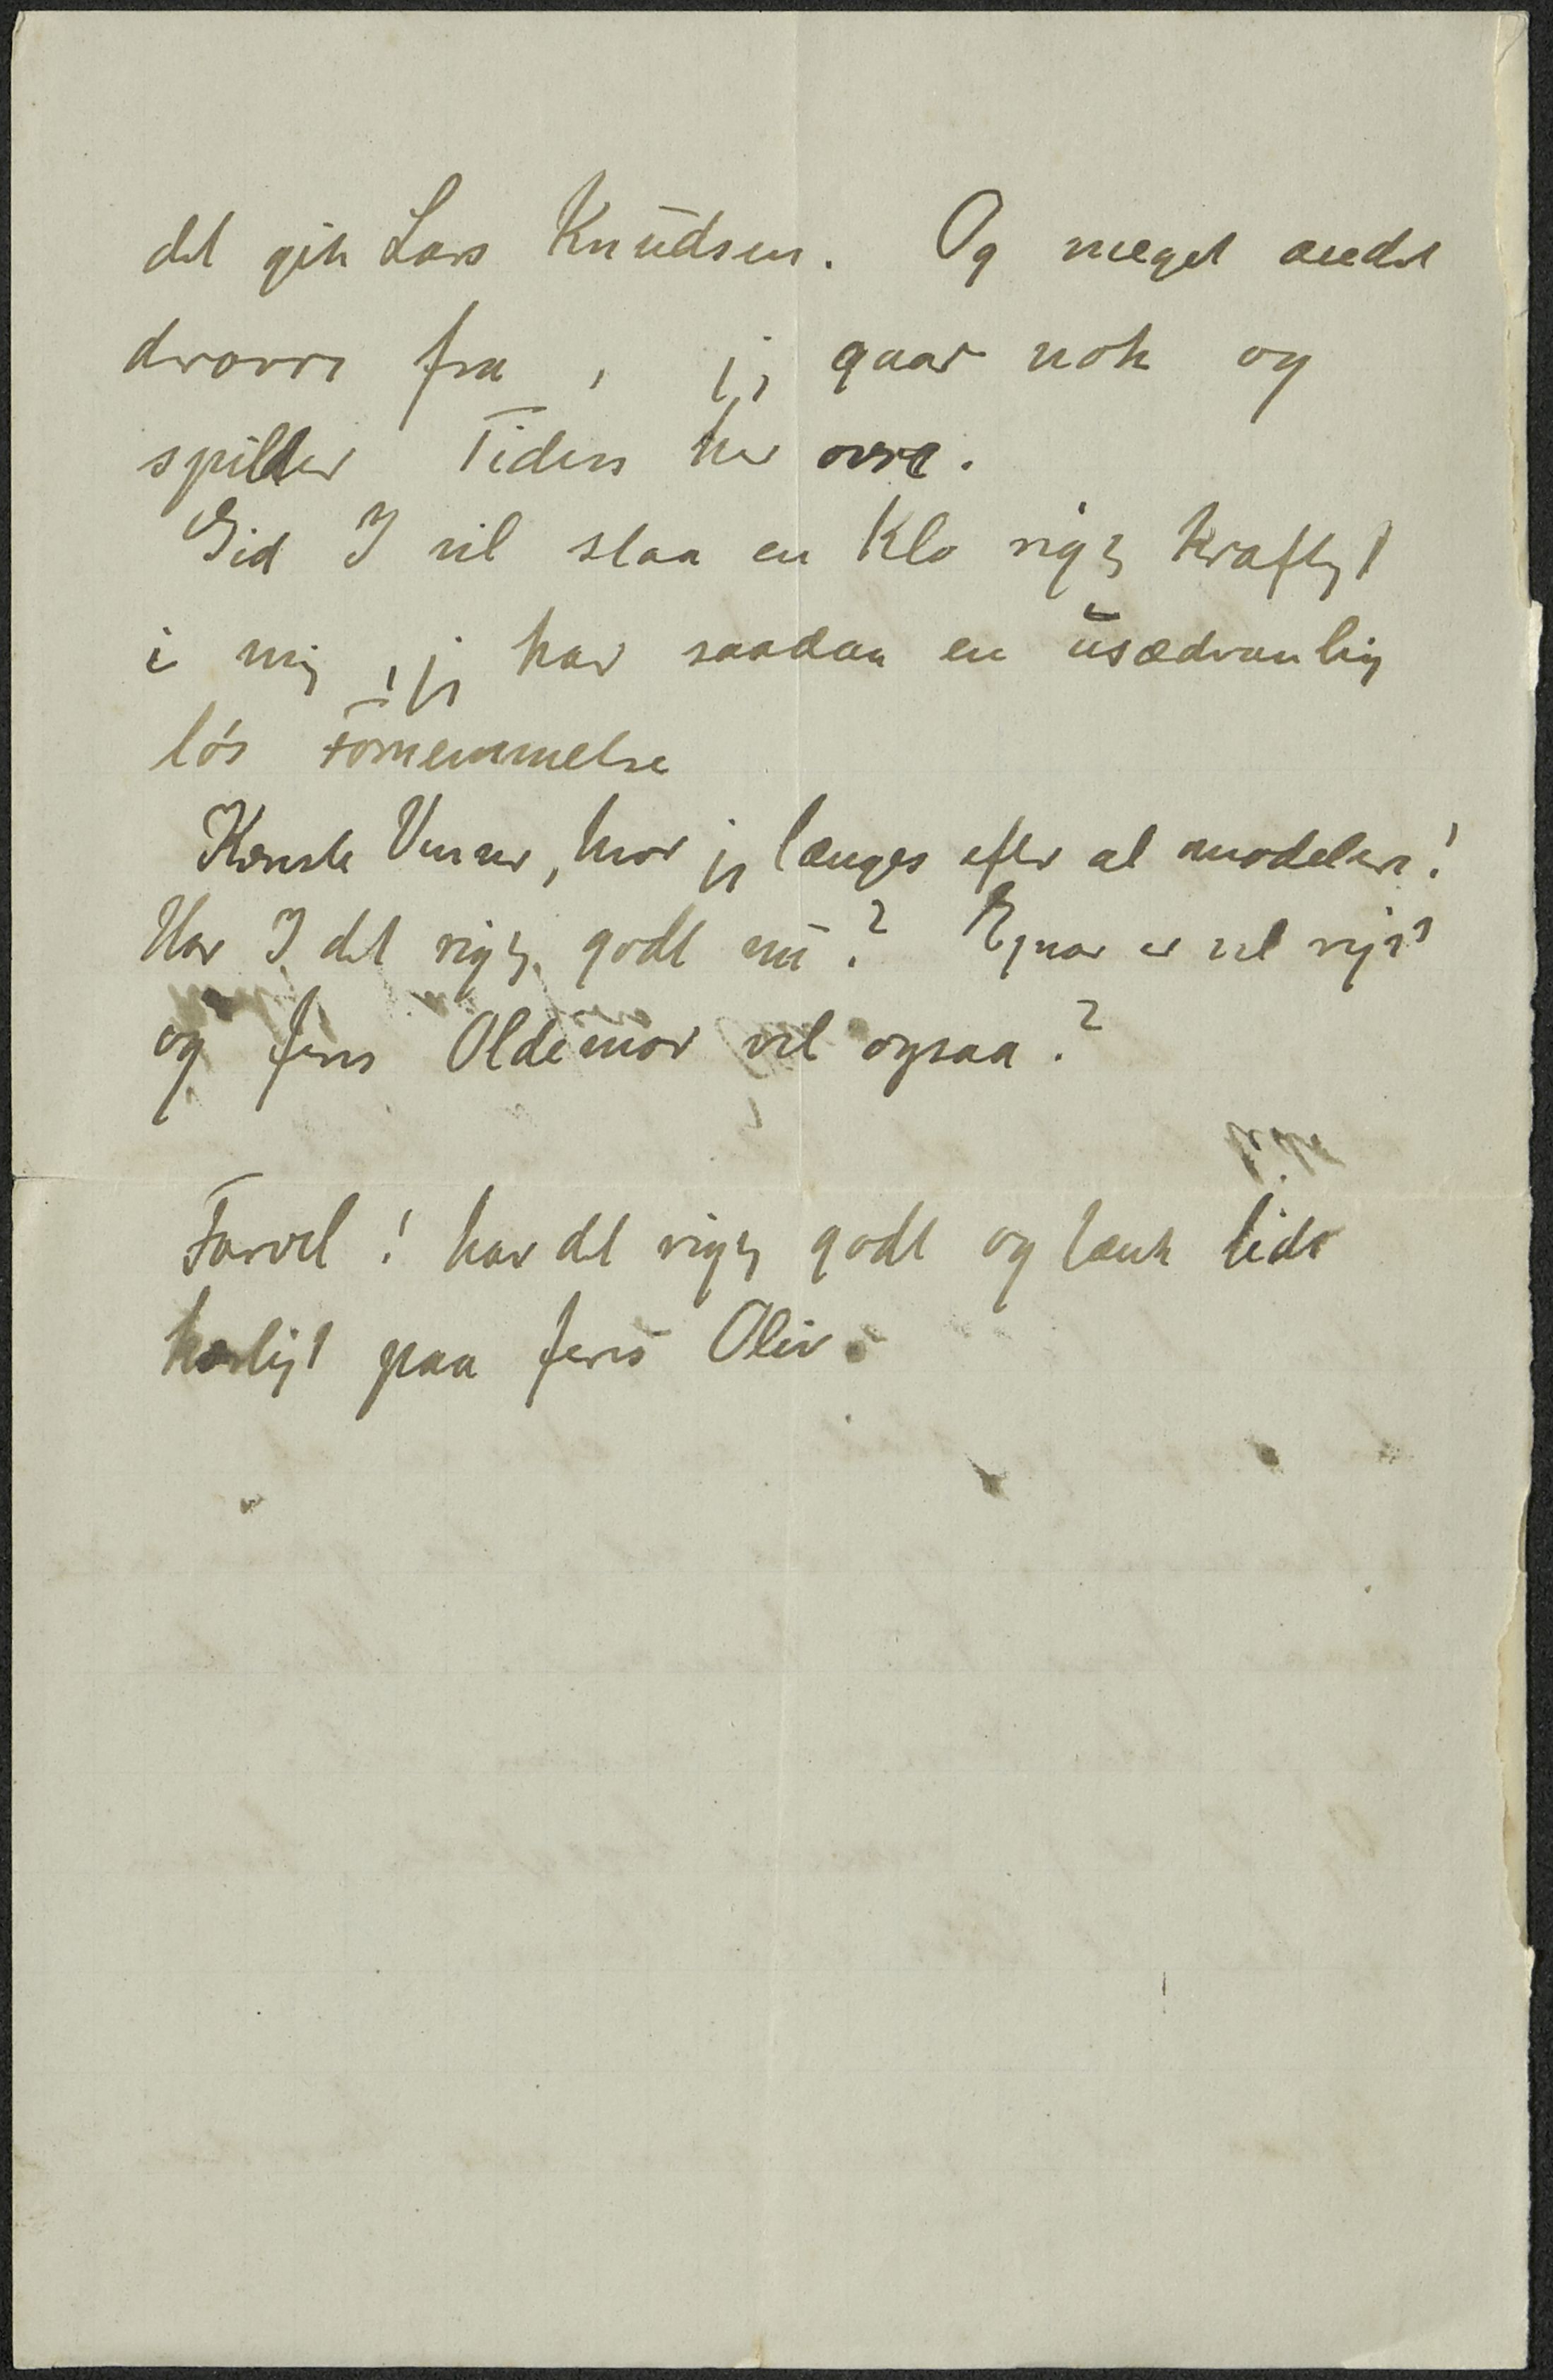 det gik Lars Knudsen. Og meget andet
derovre fra, jeg gaar nok og
spilder Tiden her ovre.
Gid I vil slaa en Klo rigtig kraftigt
i mig, jeg har saadan en usædvanlig
lös Fornemmelse
Kæreste Venner, hvor jeg længes efter at modelere!
Har I det rigtig godt nu? Ejnar er vel rejst
og Jeres Oldemor vel ogsaa?
Farvel! hav det rigtig godt og tænk lidt
kærligt paa Jeres Oliv.